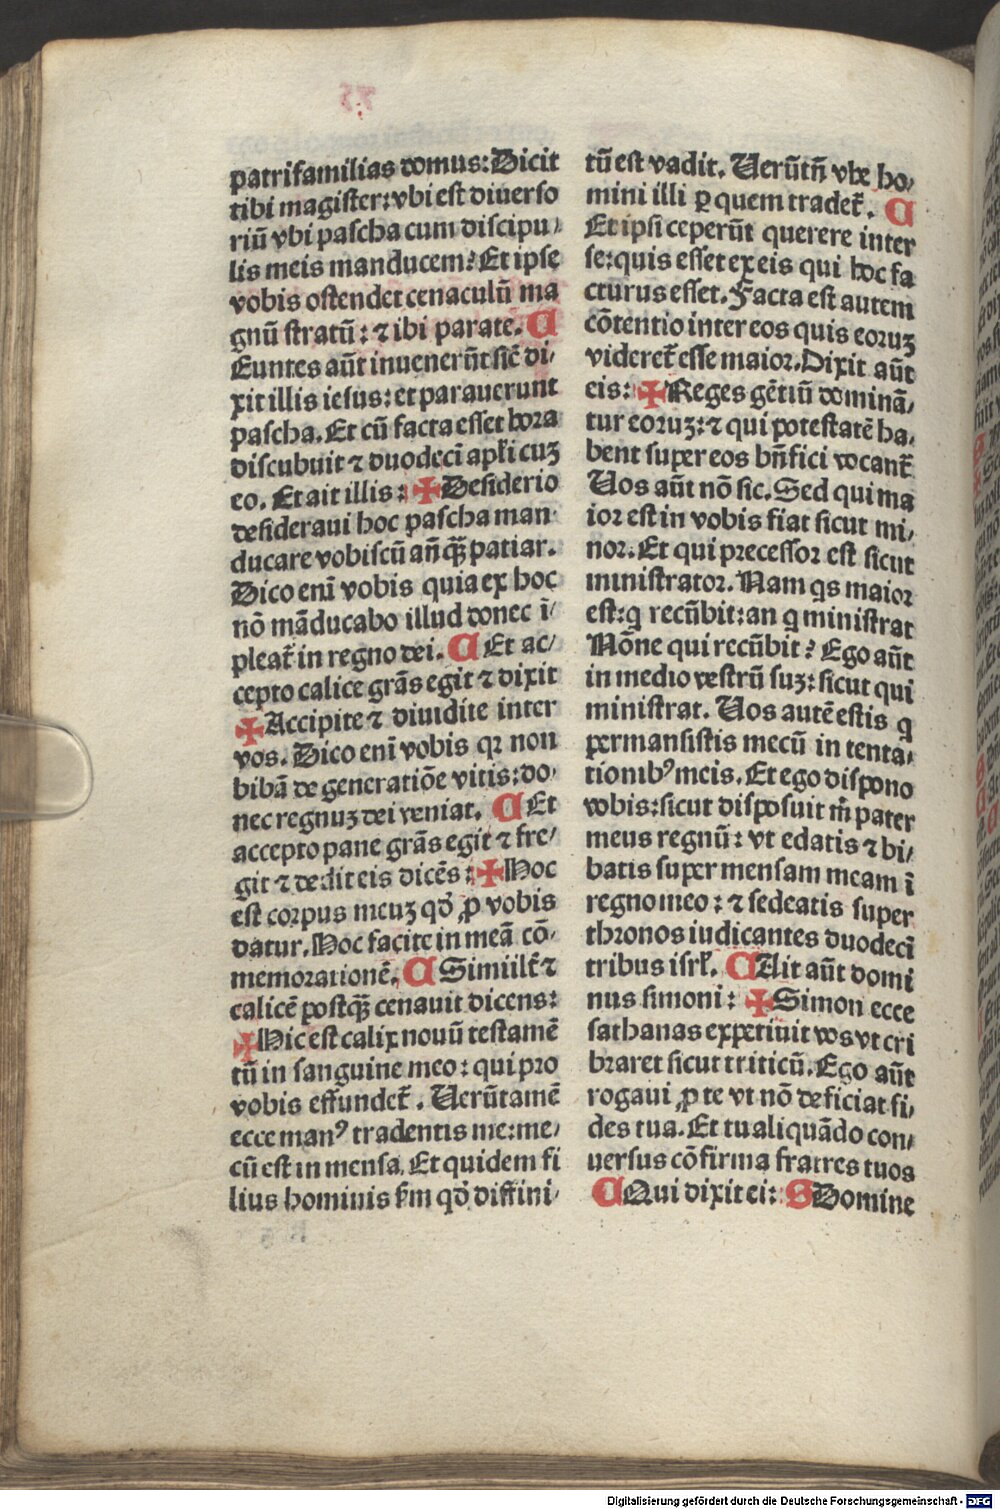 patrifamilias domus: Dicit
tibi magister: vbi est diuerso
riū vbi pascha cum discipu/
lis meis manducem? Et ipse
vobis ostendet cenaculū ma
gnū stratū: ⁊ ibi parate. C
Euntes aūt inuenerūt sic̄ di/
xit illis iesus: et parauerunt
pascha. Et cū facta esset hora
discubuit ⁊ duodecī apl̄i cuꝫ
eo. Et ait illis: ✠ Desiderio
desideraui hoc pascha man
ducare vobiscū an̄ qꝫ̄ patiar.
Dico enī vobis quia ex hoc
nō māducabo illud donec ī/
pleat̄ in regno dei. C Et ac/
cepto calice grās egit ⁊ dixit
✠ Accipite ⁊ diuidite inter
vos. Dico enī vobis qꝛ non
bibā de generatiōe vitis: do/
nec regnuꝫ dei veniat. C Et
accepto pane grās egit ⁊ fre/
git ⁊ dedit eis dicēs: ✠ Hoc
est corpus meuꝫ qd̄ ꝓ vobis
datur. Hoc facite in meā cō/
memorationē. C Similit̄ ⁊
calicē postqꝫ̄ cenauit dicens:
✠ Hic est calix nouū testamē
tū in sanguine meo: qui pro
vobis effundet̄. Uerūtamē
ecce manꝰ tradentis me: me/
cū est in mensa. Et quidem fi
lius hominis ẜm qd̄ diffini/
tū est vadit. Uerūtn̄ vbe ho/
mini illi ꝑ quem tradet̄. C
Et ipsi ceperūt querere inter
se: quis esset ex eis qui hoc fa
cturus esset. Facta est autem
cōtentio inter eos quis eoruꝫ
videret̄ esse maior. Dixit aūt
eis: ✠ Reges gētiū dominā/
tur eoruꝫ: ⁊ qui potestatē ha/
bent super eos bn̄fici vocant̄
Uos aūt nō sic. Sed qui ma
ior est in vobis fiat sicut mi/
nor. Et qui precessor est sicut
ministrator. Nam qͥs maior
est: q̇ recūbit: an q̇ ministrat
Nōne qui recūbit? Ego aūt
in medio vestrū suꝫ: sicut qui
ministrat. Uos autē estis q̇
permansistis mecū in tenta/
tionibꝰ meis. Et ego dispono
vobis: sicut disposuit m̄ pater
meus regnū: vt edatis ⁊ bi/
batis super mensam meam ī
regno meo: ⁊ sedeatis super
thronos iudicantes duodecī
tribus isrl̄. C Ait aūt domi
nus simoni: ✠ Simon ecce
sathanas expetiuit vos vt cri
braret sicut triticū. Ego aūt
rogaui ꝓ te vt nō deficiat fi/
des tua. Et tu aliquādo con/
uersus cōfirma fratres tuos
C Qui dixit ei: S Domine
Digitalisierung gefördert durch die Deutsche Forschungsgemeinschaft - DFG